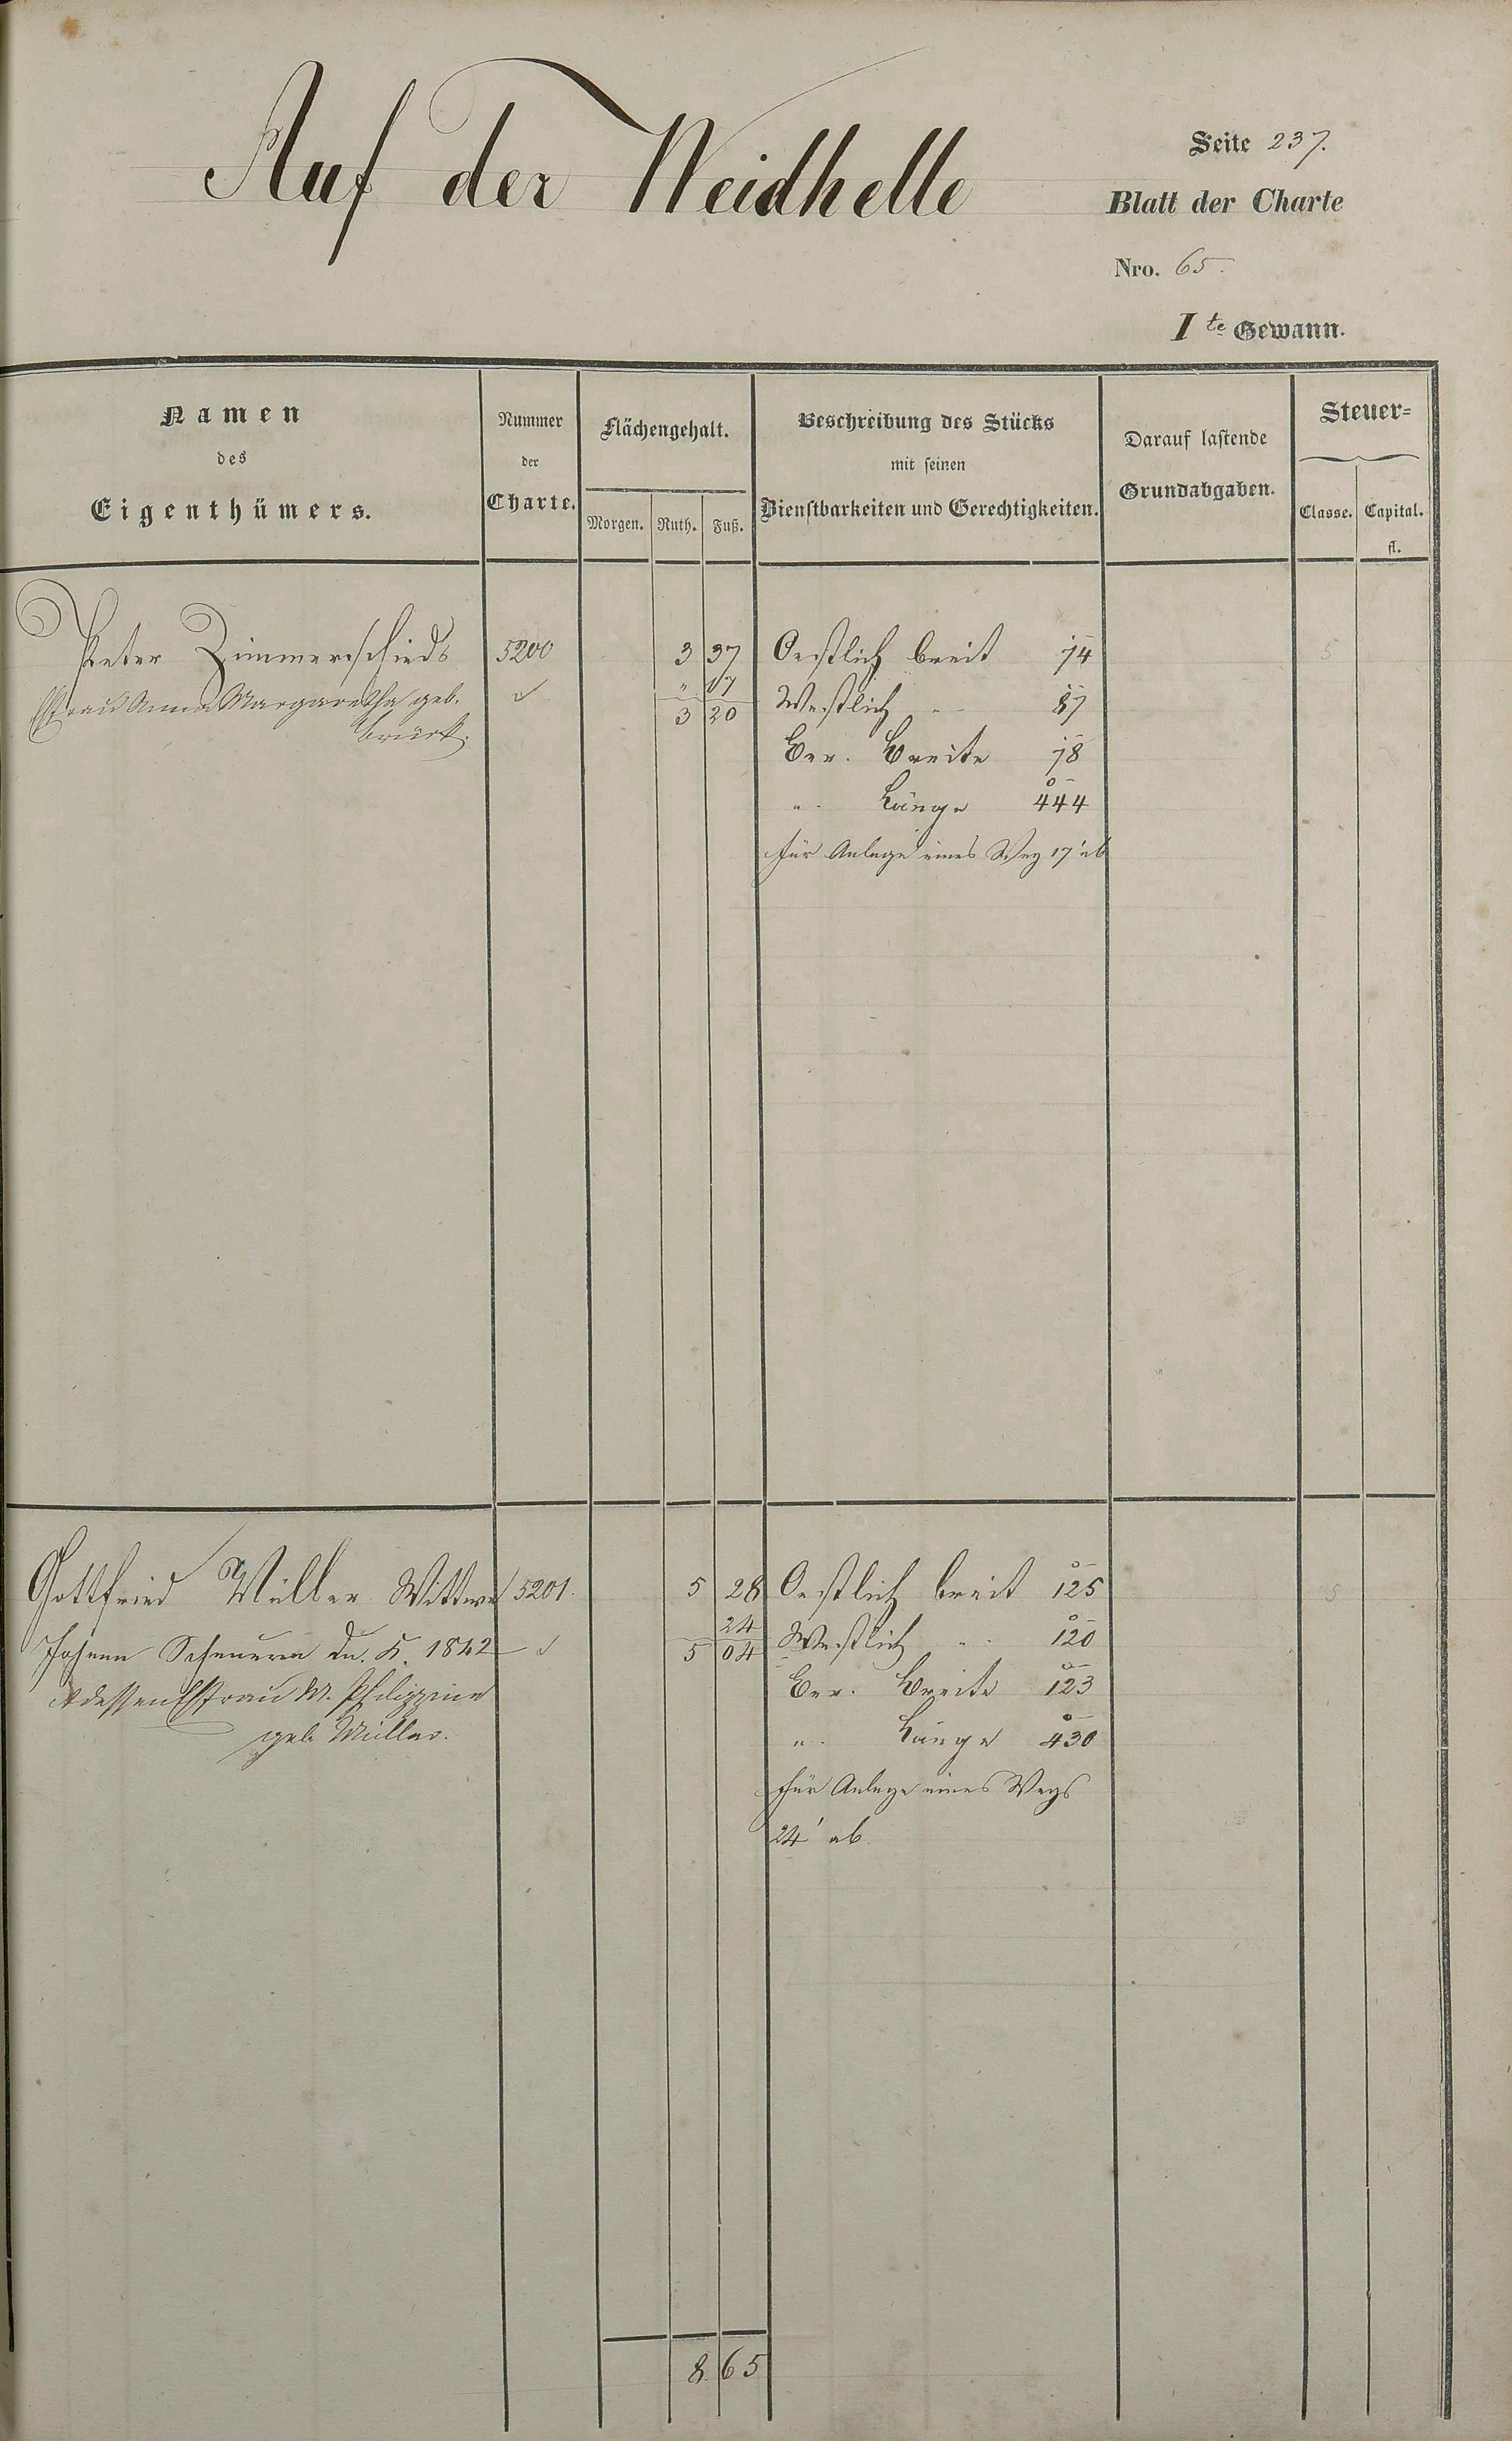 Auf der Weidhelle
Seite 237.
Blatt der Charte
Nro. 65.
Ite Gewann.
Namen
des
Eigenthümers.
Nummer
der
Charte.
Flächengehalt.
Morgen. Ruth. Fuß.
Beschreibung des Stücks
mit seinen
Dienstbarkeiten und Gerechtigkeiten.
Darauf lastende
Grundabgaben.
Steuer=
Classe. Capital.
fl.
Peter Zimmerschieds 5200 3 37 Oestlich breit 74 5
Ehfrau Anna Margaretha geb. " 17 Westlich " 87
3 20
Ber. Breite 78
" Länge 444
für Anlage eines Weg 17' ab
Gottfried Müller Wittwe 5201. 5 28 Oestlich breit 125 5
24
Johann Scheuern 1842 5 04 Westlich " 120
dessen Ehfrau M. Philippine Ber. Breite 123
geb. Müller. " Länge 430
für Anlage eines Wegs
24' ab
8 65